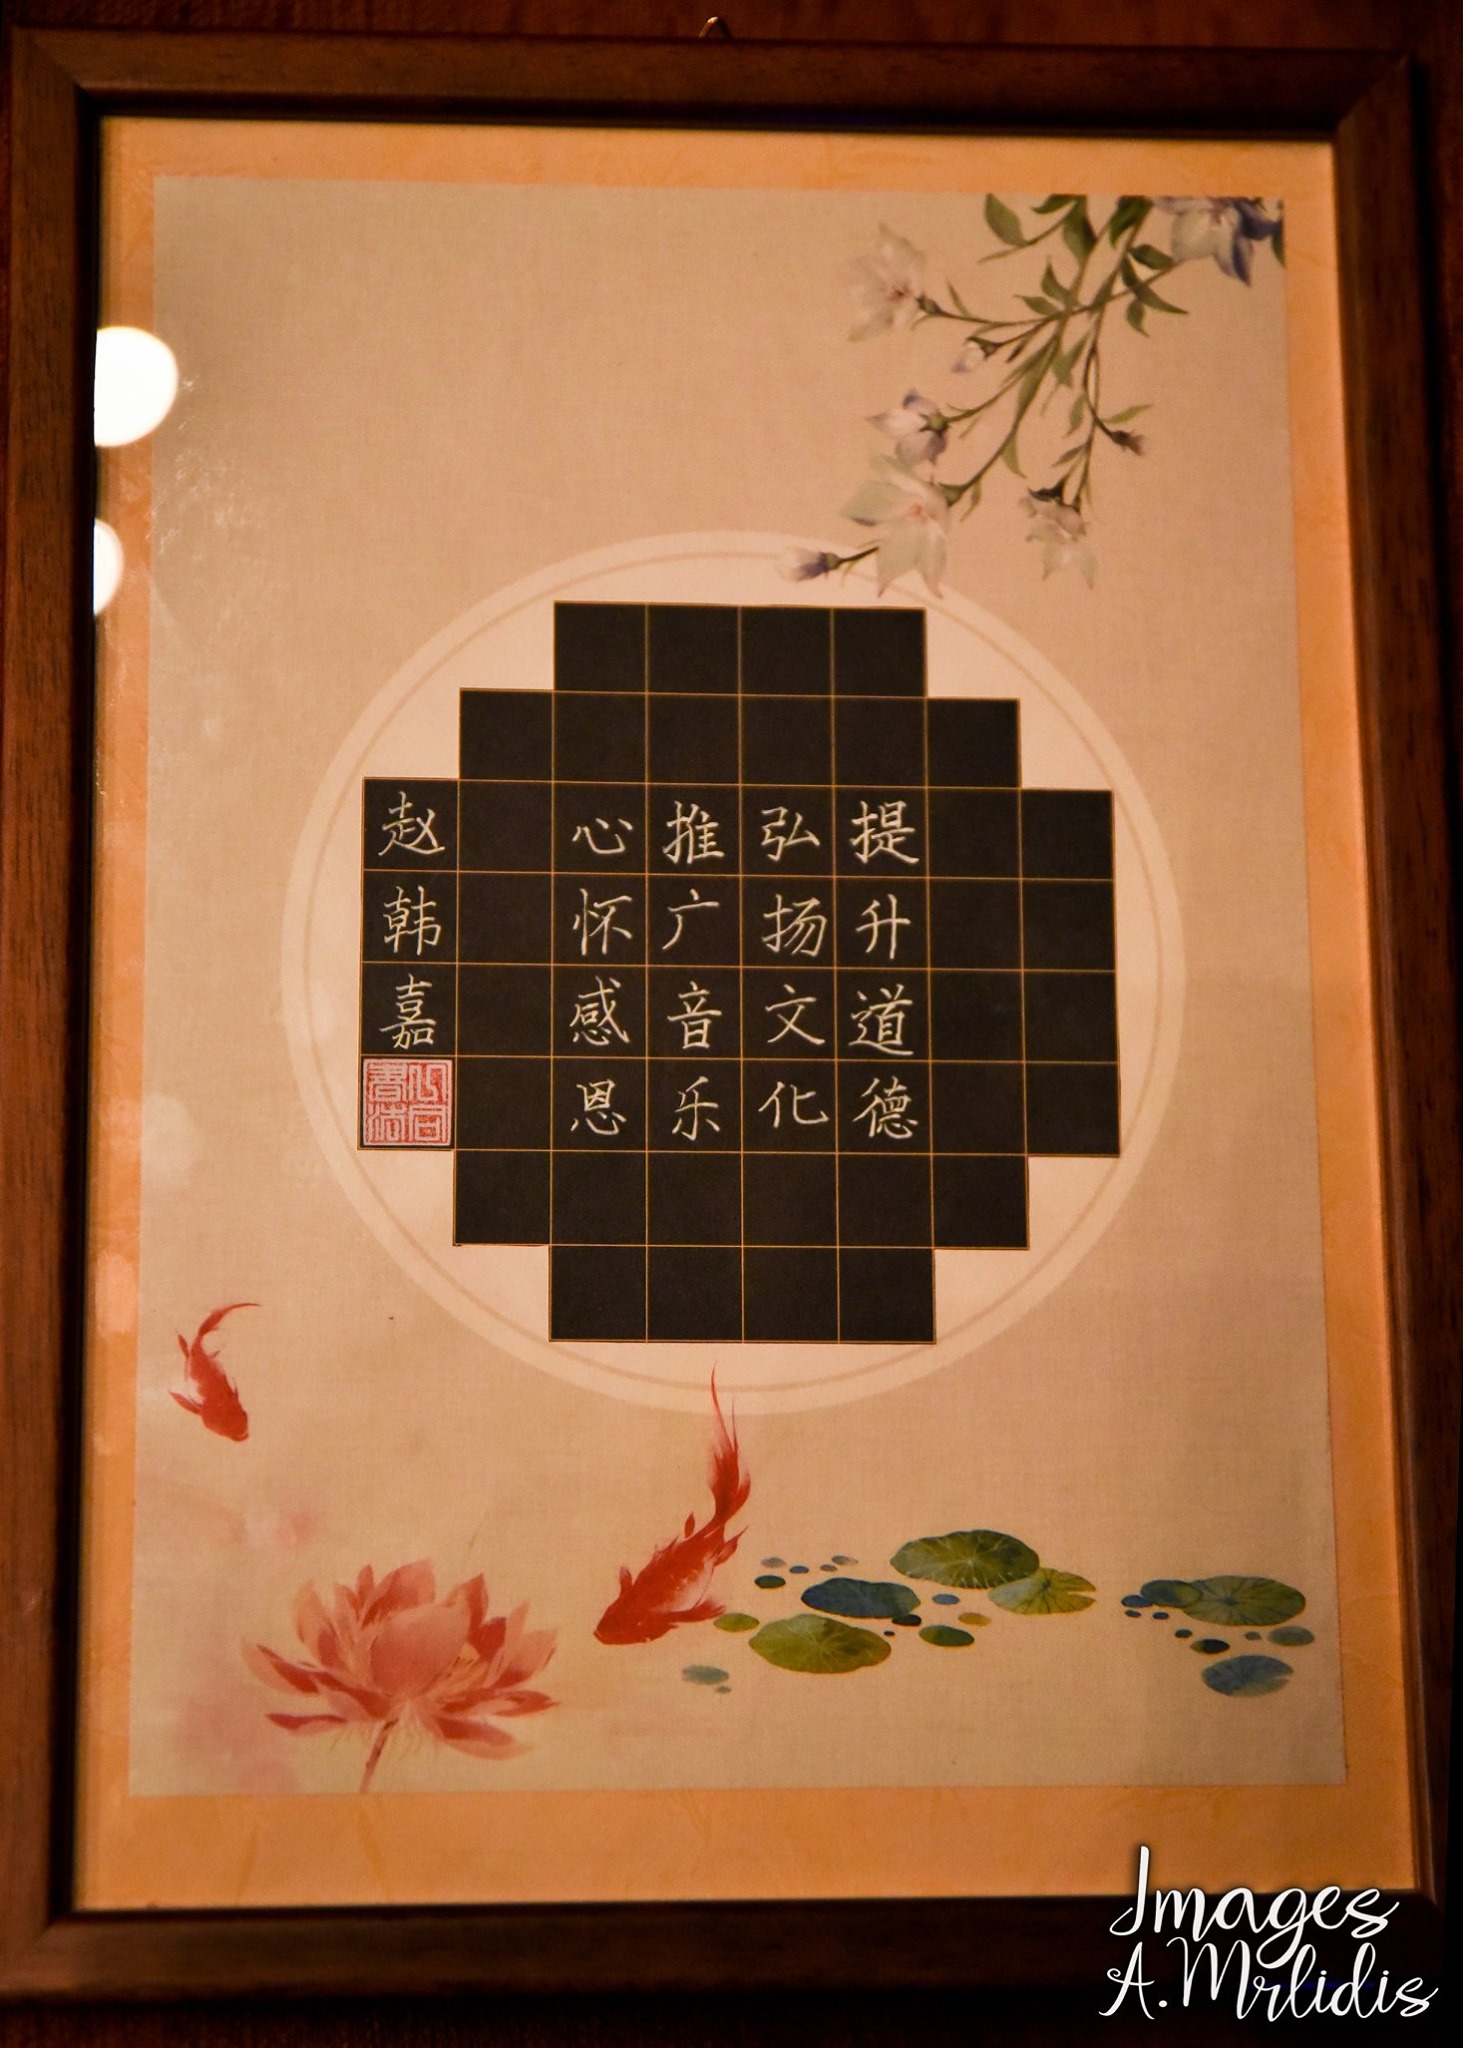 提升道德
弘扬文化
推广音乐
心怀感恩
赵韩嘉
Images
A.Mrlidis